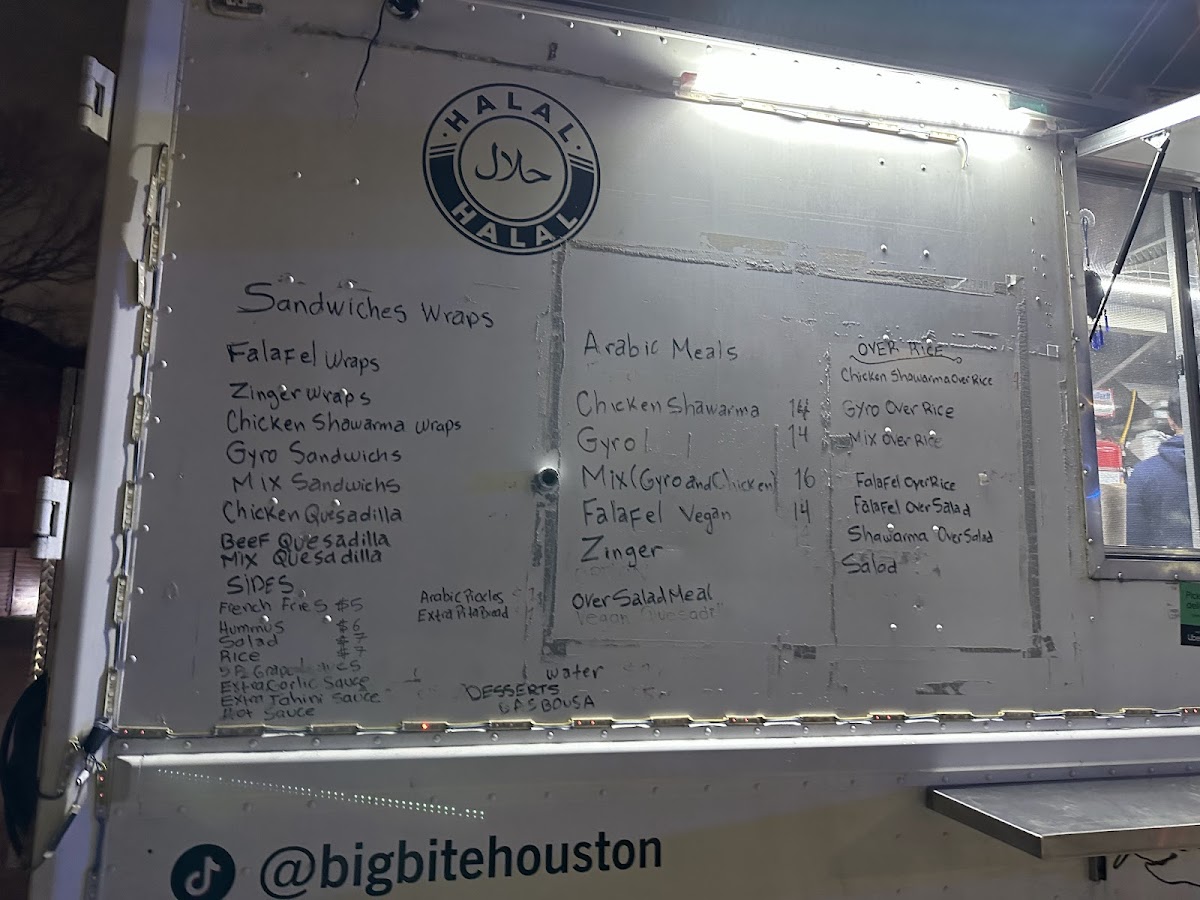 HALAL
حلال
HALAL
Sandwiches Wraps
Falafel Wraps
Zinger Wraps
Chicken Shawarma Wraps
Gyro Sandwichs
Mix Sandwichs
Chicken Quesadilla
Beef Quesadilla
Mix Quesadilla
SIDES
French Fries $5
Hummus $6
Salad $7
Rice $7
Extra Garlic Sauce
Extra Tahini Sauce
Hot Sauce
Arabic Pickles
Extra Pita Bread
water
DESSERTS
BASBOUSA
Arabic Meals
Chicken Shawarma 14
Gyro 14
Mix (Gyro and Chicken) 16
Falafel Vegan 14
Zinger
Over Salad Meal
OVER RICE
Chicken Shawarma Over Rice
Gyro Over Rice
Mix Over Rice
Falafel Over Rice
Falafel Over Salad
Shawarma Over Salad
Salad
@bigbitehouston